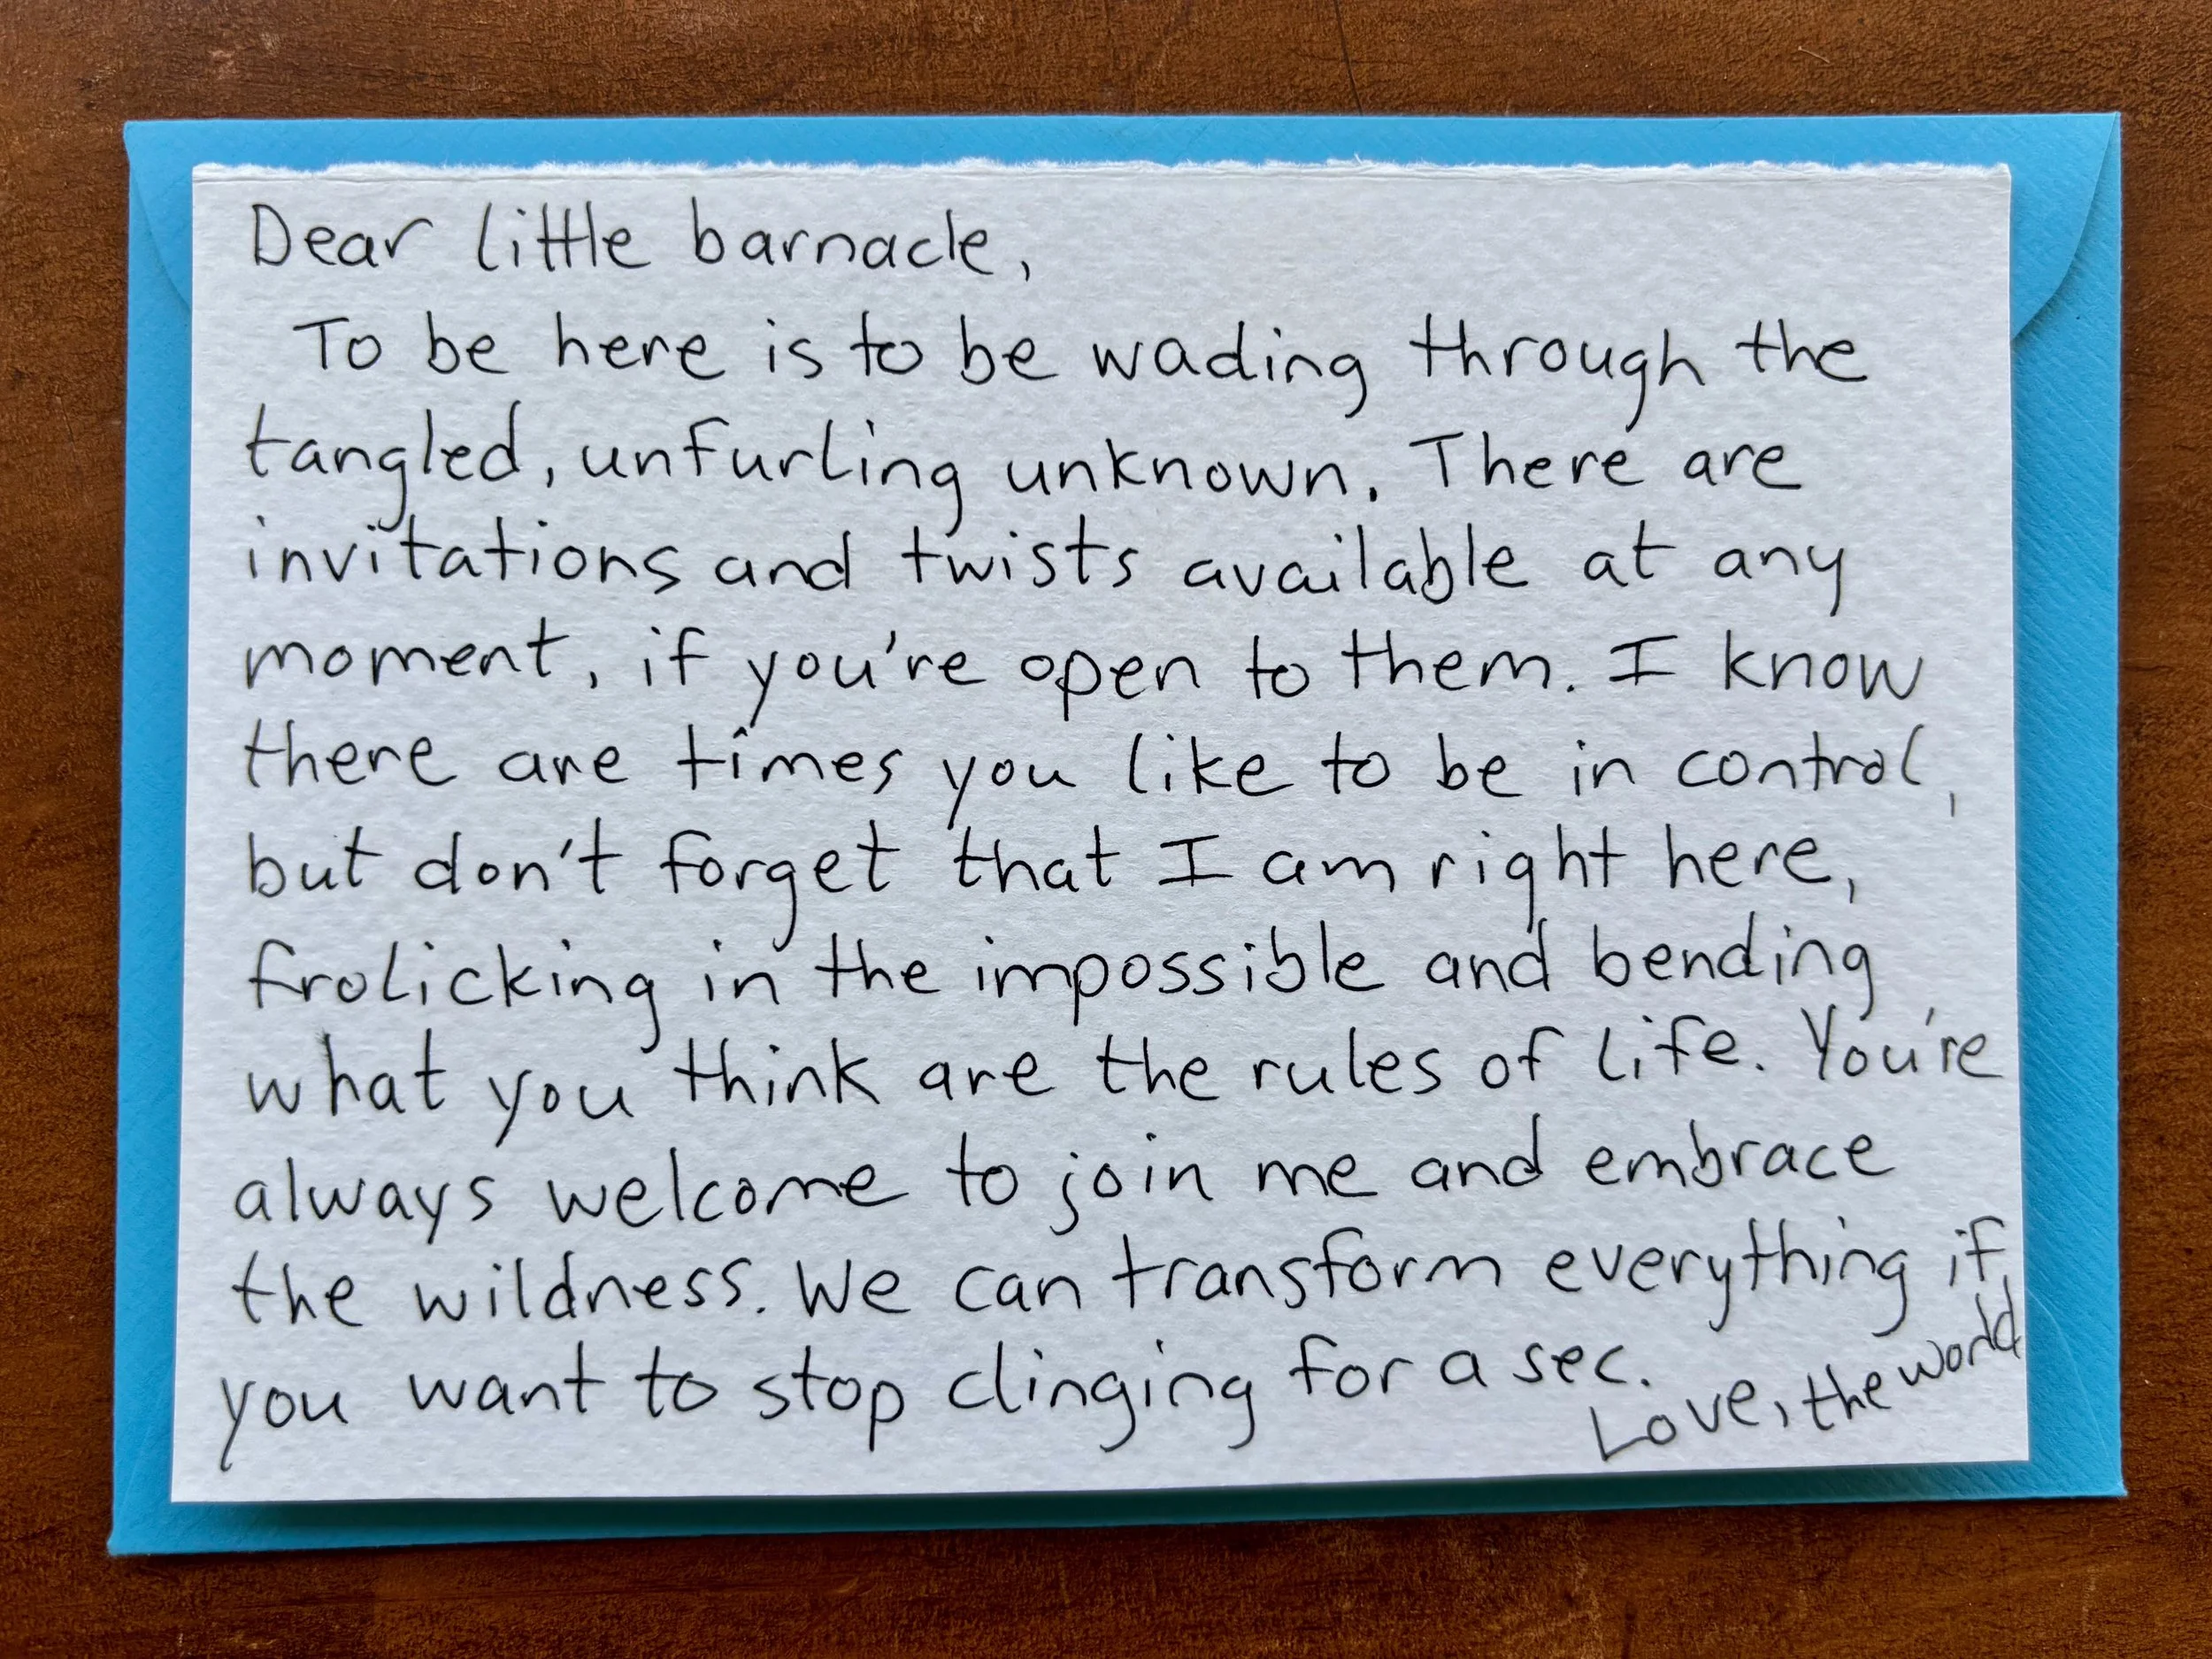 Dear little barnacle,
To be here is to be wading through the
tangled, unfurling unknown. There are
invitations and twists available at any
moment, if you're open to them. I know
there are times you like to be in control,
but don't forget that I am right here,
frolicking in the impossible and bending
what you think are the rules of life. You're
always welcome to join me and embrace
the wildness. We can transform everything if
you want to stop clinging for a sec.
Love, the world